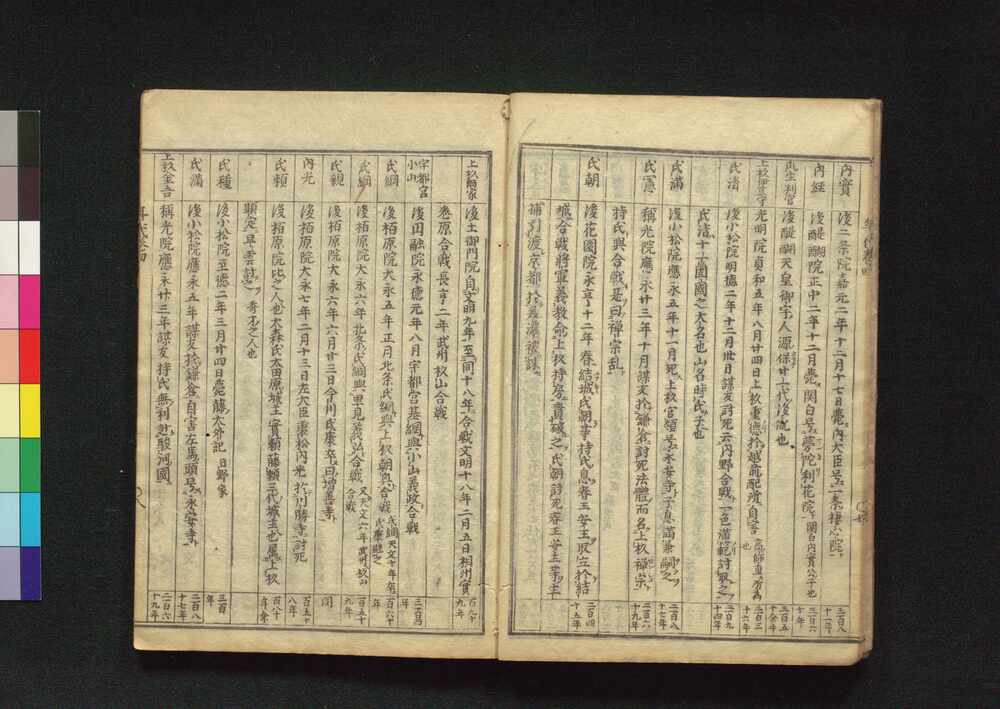 内實
後二条院嘉元二年十二月十七日薨内大臣号一条棲心院
三百八十一年
内経
後醍醐院正中二年十二月薨関白号夢陀利花院関白内實公ノ子也
三百六十年
民主判官
後醍醐天皇御宇人源保廿六代後胤也
三百五十八余年
上杉伊豆守
光明院貞和五年八月廿四日上杉重能於越前配所自害高師直所為也
三百三十六年
氏清
後小松院明徳二年十二月卅日謀反討死云内野合戦一色滿範討取之
二百九十四年
氏清十一ヶ國國之大名也山名時氏子也
氏滿
後小松院應永五年十一月死上杉官領号永安寺子息滿兼嗣之
二百八十七年
氏憲
稱光院應永廿三年十月謀反於鎌倉討死法體而名上杉禅宗
二百六十九年
持氏與合戦是曰禅宗乱
氏朝
後花園院永享十二年春結城氏朝奉持氏息春王安王取立於結
二百四十五年
城合戦將軍義教命上杉持房責破之氏朝討死春王安王等主
捕引渡京都於差濃被誅
上杉顕家
後土御門院自文明九年至同十八年合戦文明十八年二月五日相州實
百九十九年
巻原合戦長享二年武州杉山合戦
宇都宮小山
後円融院永徳元年八月宇都宮基綱與小山義政合戦
三百四年
氏綱
後柏原院大永五年正月北条氏綱與上杉朝興合戦氏綱天文十年卒氏康継之
百六十年
氏綱
後柏原院大永六年北条氏綱與里見義弘合戦又天文六年武州杉山合戦
百五十九年
氏親
後柏原院大永六年六月廿三日今川氏康卒曰増善寺
同
内光
後柏原院大永七年二月十三日左大臣康松内光於川勝寺討死
百五十八年
氏頼
後柏原院比之人也大森氏大田原城主實頼藤頼三代城主也属上杉
百八十年余
顕定早雲討之希不之人也
氏種
後小松院至徳二年三月廿四日薨藤大外記日野家
三百年
氏滿
後小松院應永五年謀反於鎌倉自害左馬頭号永安寺
二百八十七年
上杉金吾
稱光院應永廿三年謀反持氏無利赴駿河國
二百六十九年